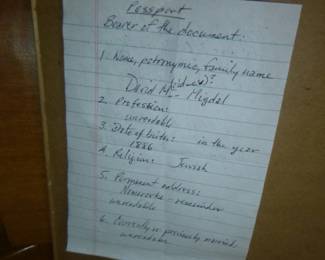 Passport
Bearer of the document:
1. Name, patronymic, family name
David M Migdal
2. Profession:
unreadable
3. Date of birth: in the year
1886
4. Religion: Jewish
5. Permanent address:
- remainder
unreadable
6. Currently or previously married
unreadable